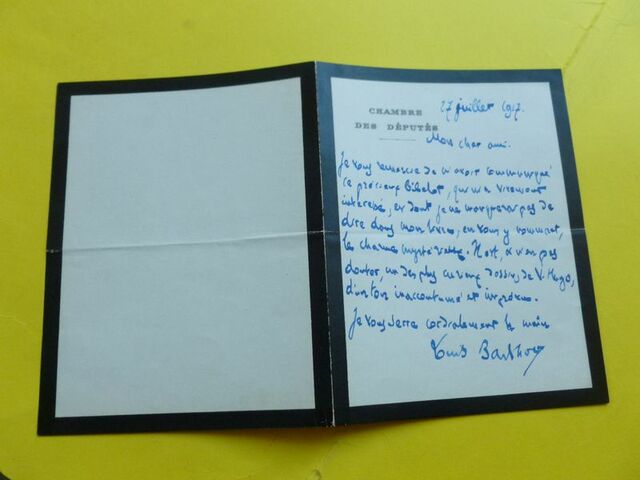 CHAMBRE
DES DÉPUTÉS
27 juillet 1917.
Mon cher ami.
Je vous remercie de m'avoir communiqué
ce précieux bibelot, qui m'a vivement
intéressé, et dont je ne manquerai pas de
dire dans mon livre, en vous y nommant,
les charmes mystérieux. C'est, à n'en pas
douter, un des plus curieux dessins de V. Hugo,
d'un ton inaccoutumé et imprévu.
Je vous serre cordialement la main
Louis Barthou